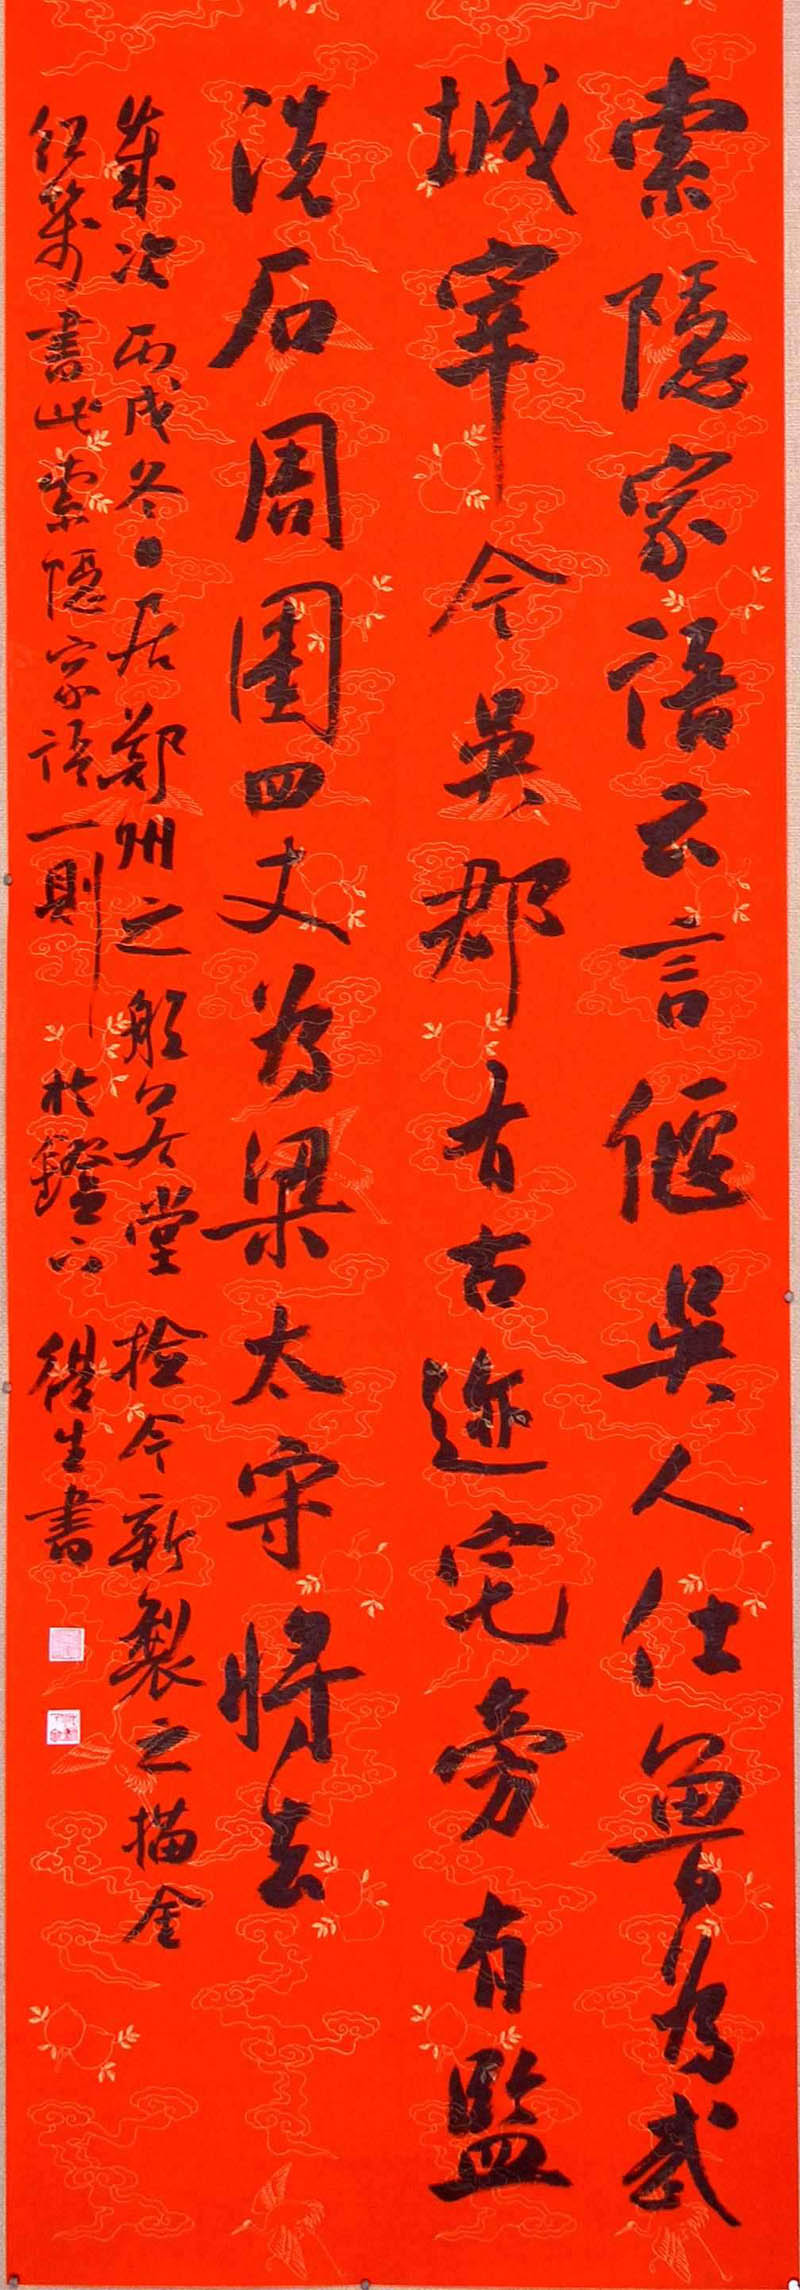 索隱家語云言偃吳人仕魯為武
城宰今吳郡有古迹宅旁有監
洗石周圍四丈為梁太守將去
歲次丙戌冬日居鄭州之般若堂拾今新製之描金
红笺书此索隱家語一則於鐙下继生書